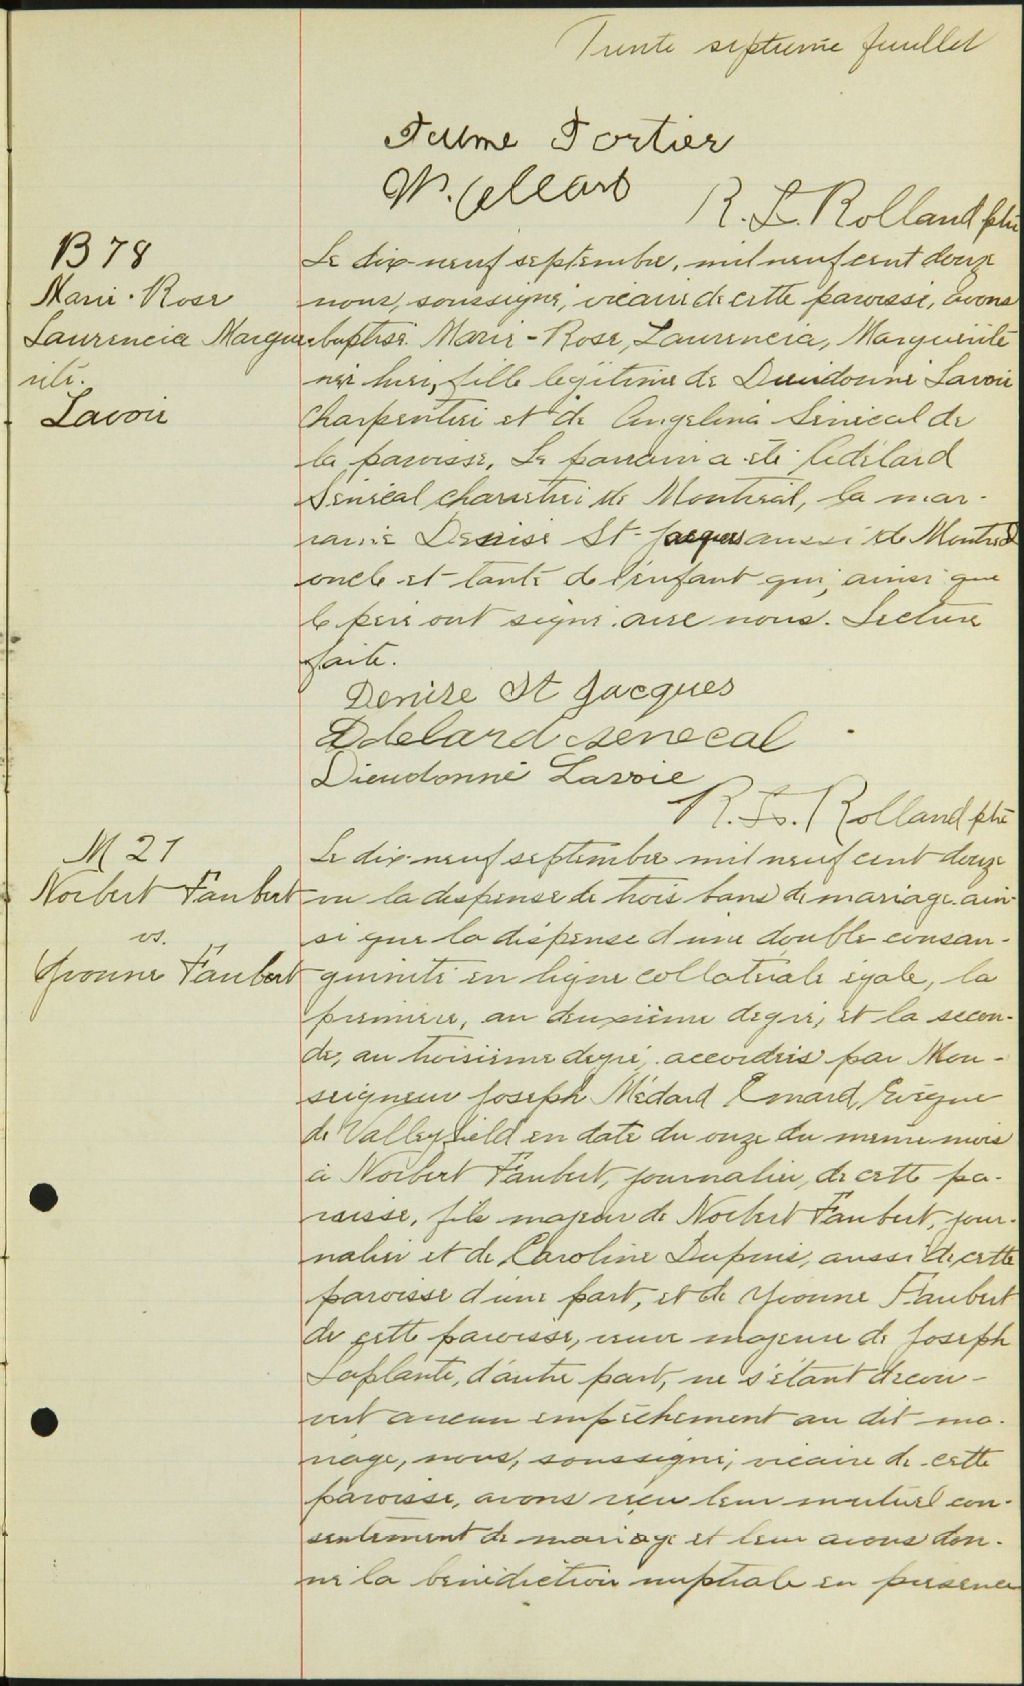 Trente septième feuillet
Fortier
R. L. Rolland ptre
B 78
Marie-Rose
Laurencia Margue-
rite.
Lavoie
Le dix-neuf septembre, mil neuf cent douze
nous, soussigné, vicaire de cette paroisse, avons
baptisé Marie-Rose, Laurencia, Marguerite
née hier, fille légitime de Dieudonné Lavoie
charpentier et de Angelina Sénécal de
la paroisse. Le parrain a été Adélard
Sénécal charretier de Montréal, la mar-
raine Denise St-Jacques aussi de Montréal
oncle et tante de l'enfant qui, ainsi que
le père ont signé avec nous. Lecture
faite.
Denise St Jacques
Adelard Senecal
Dieudonné Lavoie
R. L. Rolland ptre
M 21
Norbert Faubert
vs.
Yvonne Faubert
Le dix-neuf septembre mil neuf cent douze
vu la dispense de trois bans de mariage ain-
si que la dispense d'une double consan-
guinité en ligne collatérale égale, la
première, au deuxième degré, et la secon-
de, au troisième degré, accordées par Mon-
seigneur Joseph Médard Emard, Evêque
de Valleyfield en date du onze du même mois
à Norbert Faubert, journalier, de cette pa-
roisse, fils majeur de Norbert Faubert, jour-
nalier et de Caroline Dupuis, aussi de cette
paroisse d'une part, et de Yvonne Faubert
de cette paroisse, veuve majeure de Joseph
Laplante, d'autre part, ne s'étant décou-
vert aucun empêchement au dit ma-
riage, nous, soussigné, vicaire de cette
paroisse, avons reçu leur mutuel con-
sentement de mariage et leur avons don-
né la bénédiction nuptiale en présence